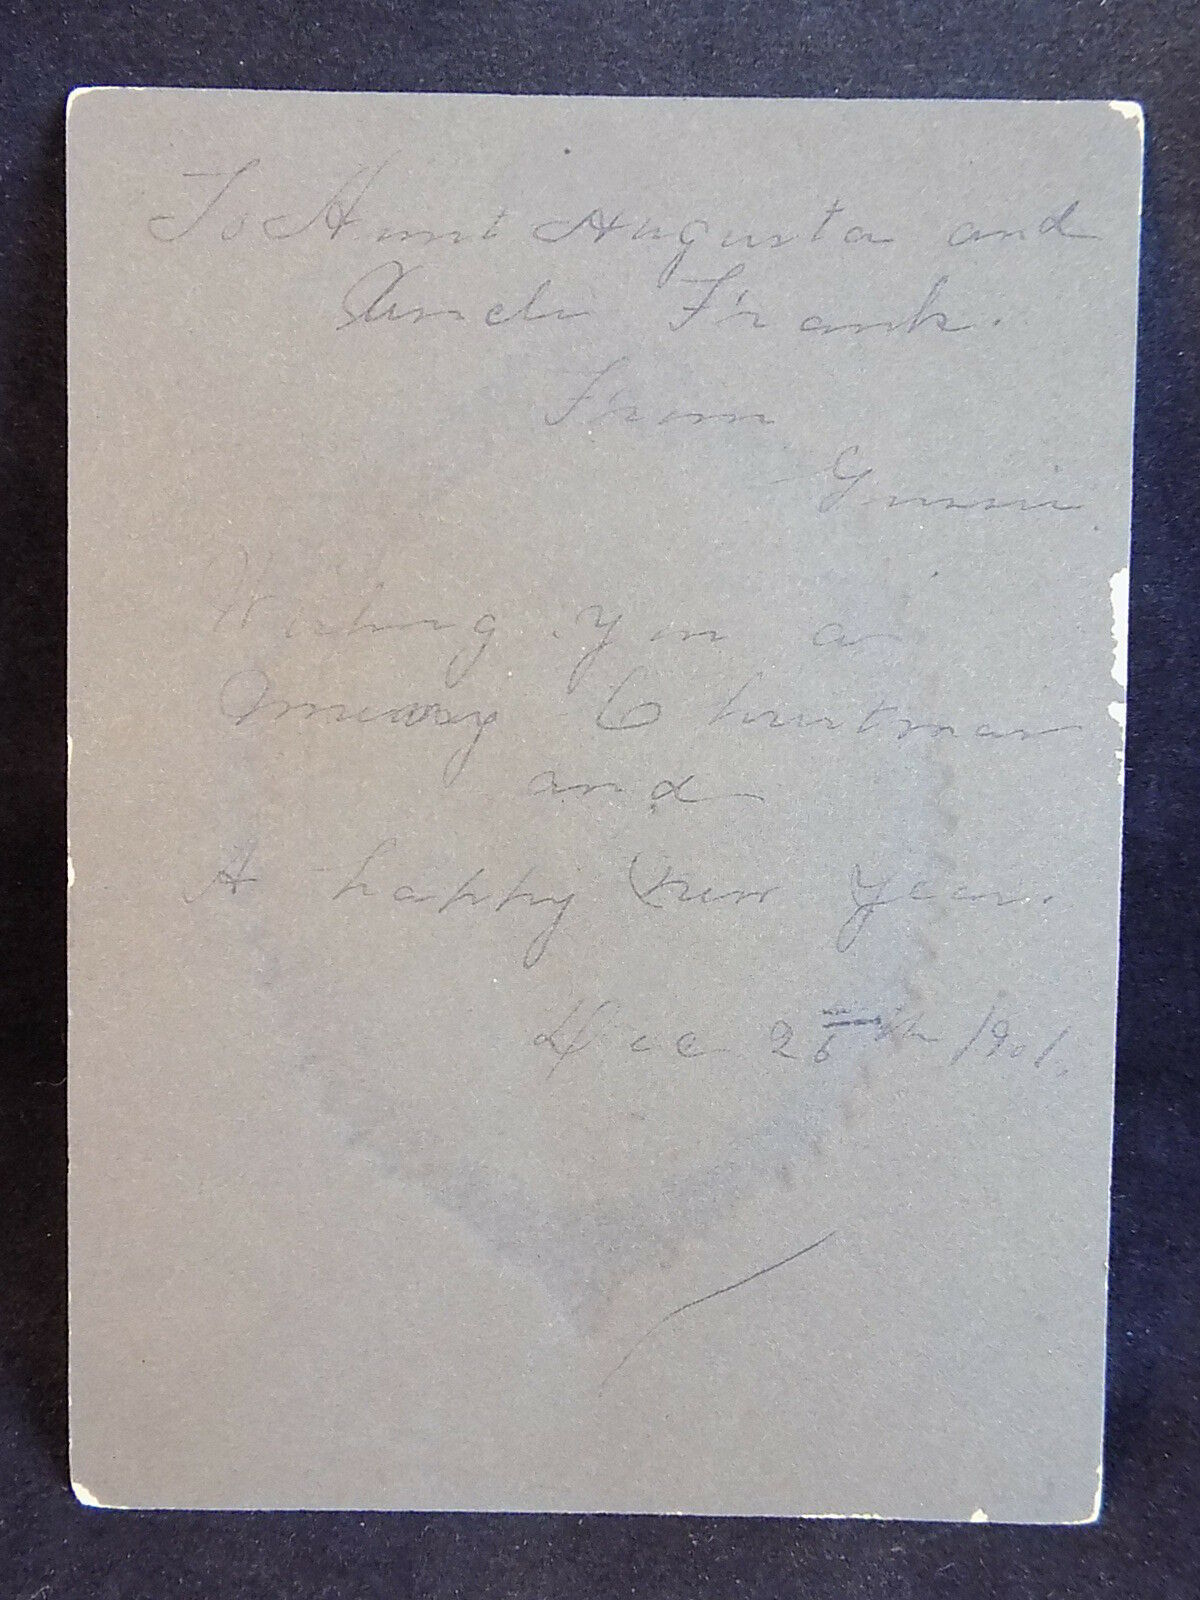 To Aunt Augusta and
Uncle Frank.
From
Gussie.
Wishing you a
merry Christmas
and
A happy new year.
Dec 25th 1901.